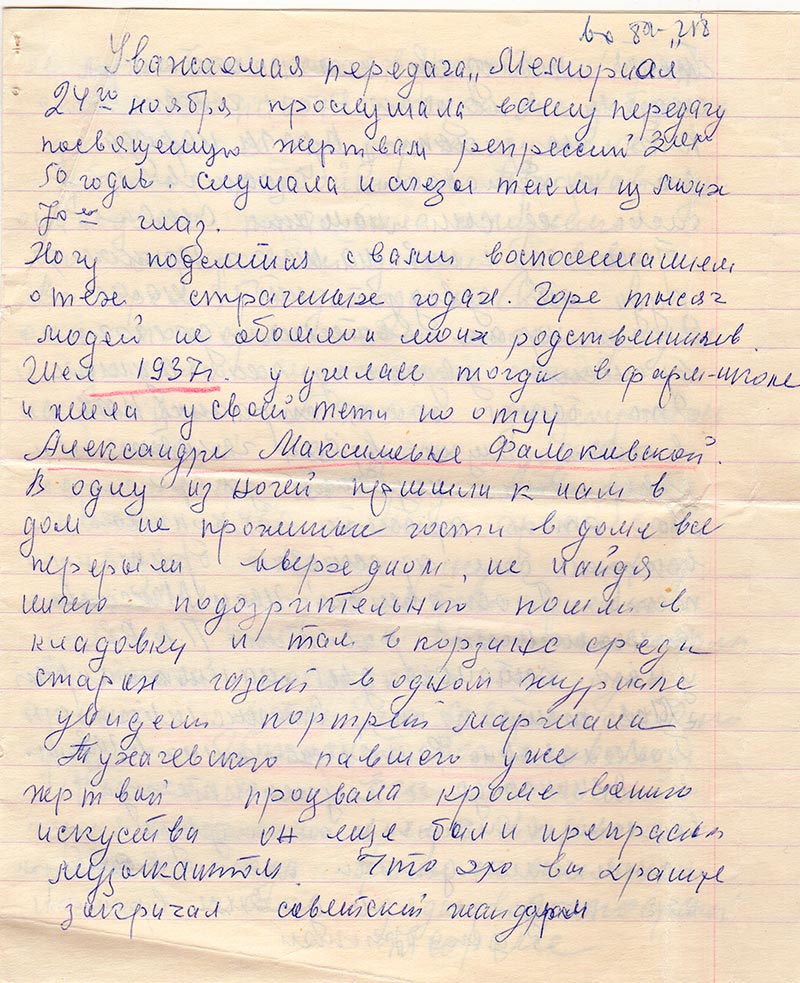 Уважаемая передача „Мемориал"
24го ноября прослушала вашу передачу
посвящещую жертвам репрессий
50 годов. слушала и слезы текли из моих
70-и глаз.
Хочу поделится с вами воспоминанием
о тех страчных годах. Горе тысяч
людей не обошло и моих родственников.
Шел 1937г. у училась тогда в фарм-школе
и жила у своей тети по отцу
Александры Максимовне Фальковской.
В одну из ночей пришли к нам в
дом не прошеные гости в доме все
перерыли вверхдном, не найдя
ничего подозрительного пошли в
кладовку и там в корзине среди
старых газет в одном журнале
увидели портрет маршала
Тухачевского павшего уже
жертвой произвала кроме военного
искуства он еще был и прекрасным
музыкантом. Что это вы храните
закричал советский жандарм